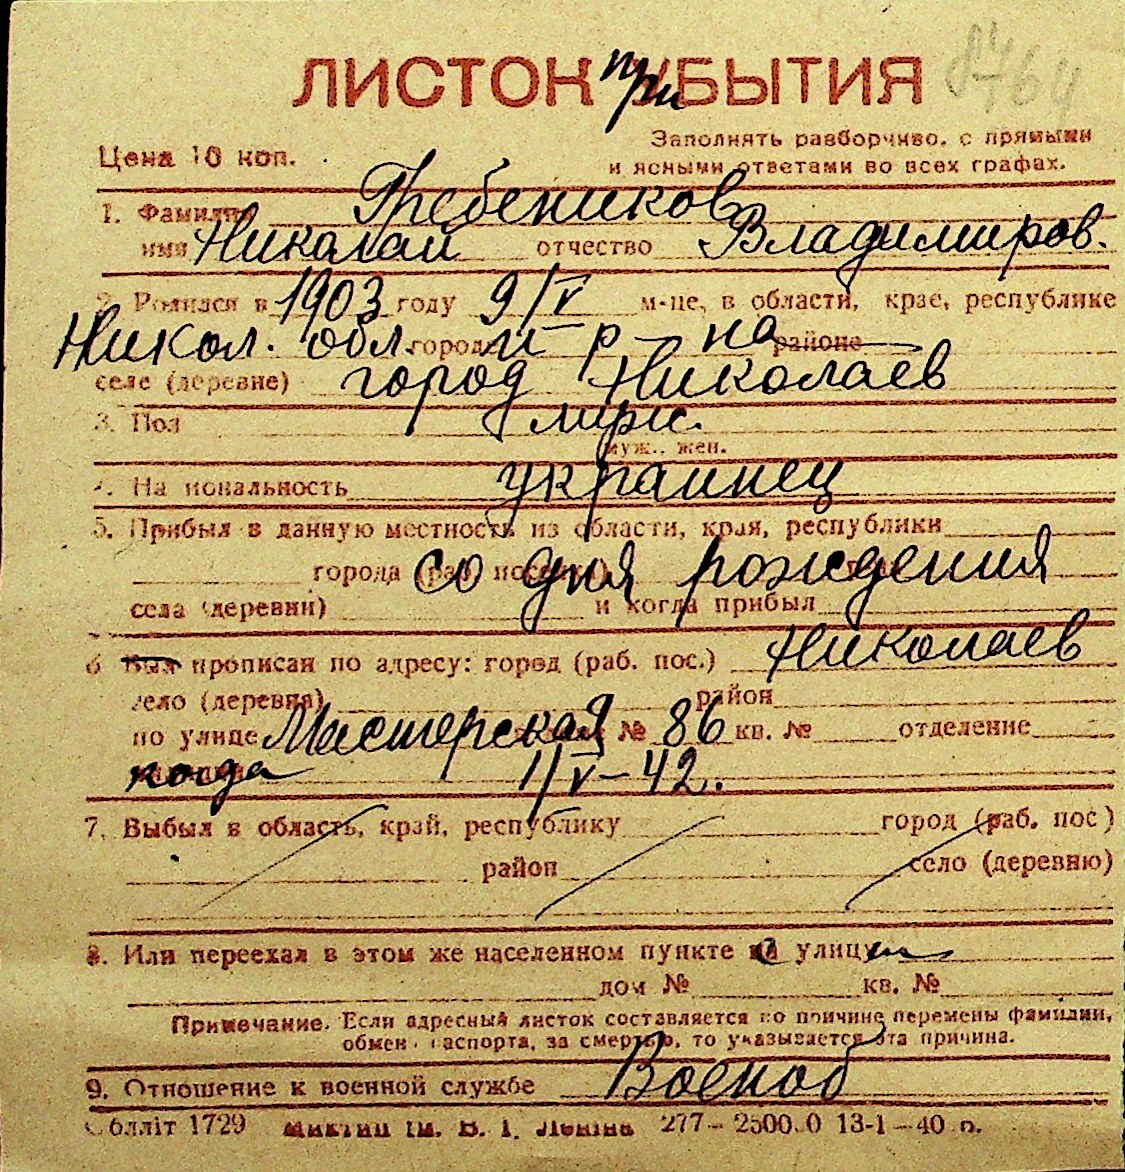 8464
ЛИСТОК прибытия
Цена 10 коп.
Заполнять разборчиво, с прямыми
и ясными ответами во всех графах.
1. Фамилия Гребеников
имя Николай отчество Владимиров.
2. Родился в 1903 году 9/V м-це, в области, крае, республике
Никол. обл. города и р-на районе
селе (деревне) город Николаев
3. Пол муж.
муж., жен.
4. Национальность украинец
5. Прибыл в данную местность из области, края, республики
города (раб. поселка) со дня рождения
села (деревни) и когда прибыл
6 Был прописан по адресу: город (раб. пос.) Николаев
село (деревня) район
по улице Мастерская № 86 кв. № отделение
когда 1/V-42.
7. Выбыл в область, край, республику город (раб. пос)
район село (деревню)
8. Или переехал в этом же населенном пункте с улицы
дом № кв. №
Примечание. Если адресный листок составляется по причине перемены фамилии,
обмен паспорта, за смертью, то указывается эта причина.
9. Отношение к военной службе Военоб
Обллiт 1729 iм. В. I. Ленiна 277-2500.0 13-1-40 р.